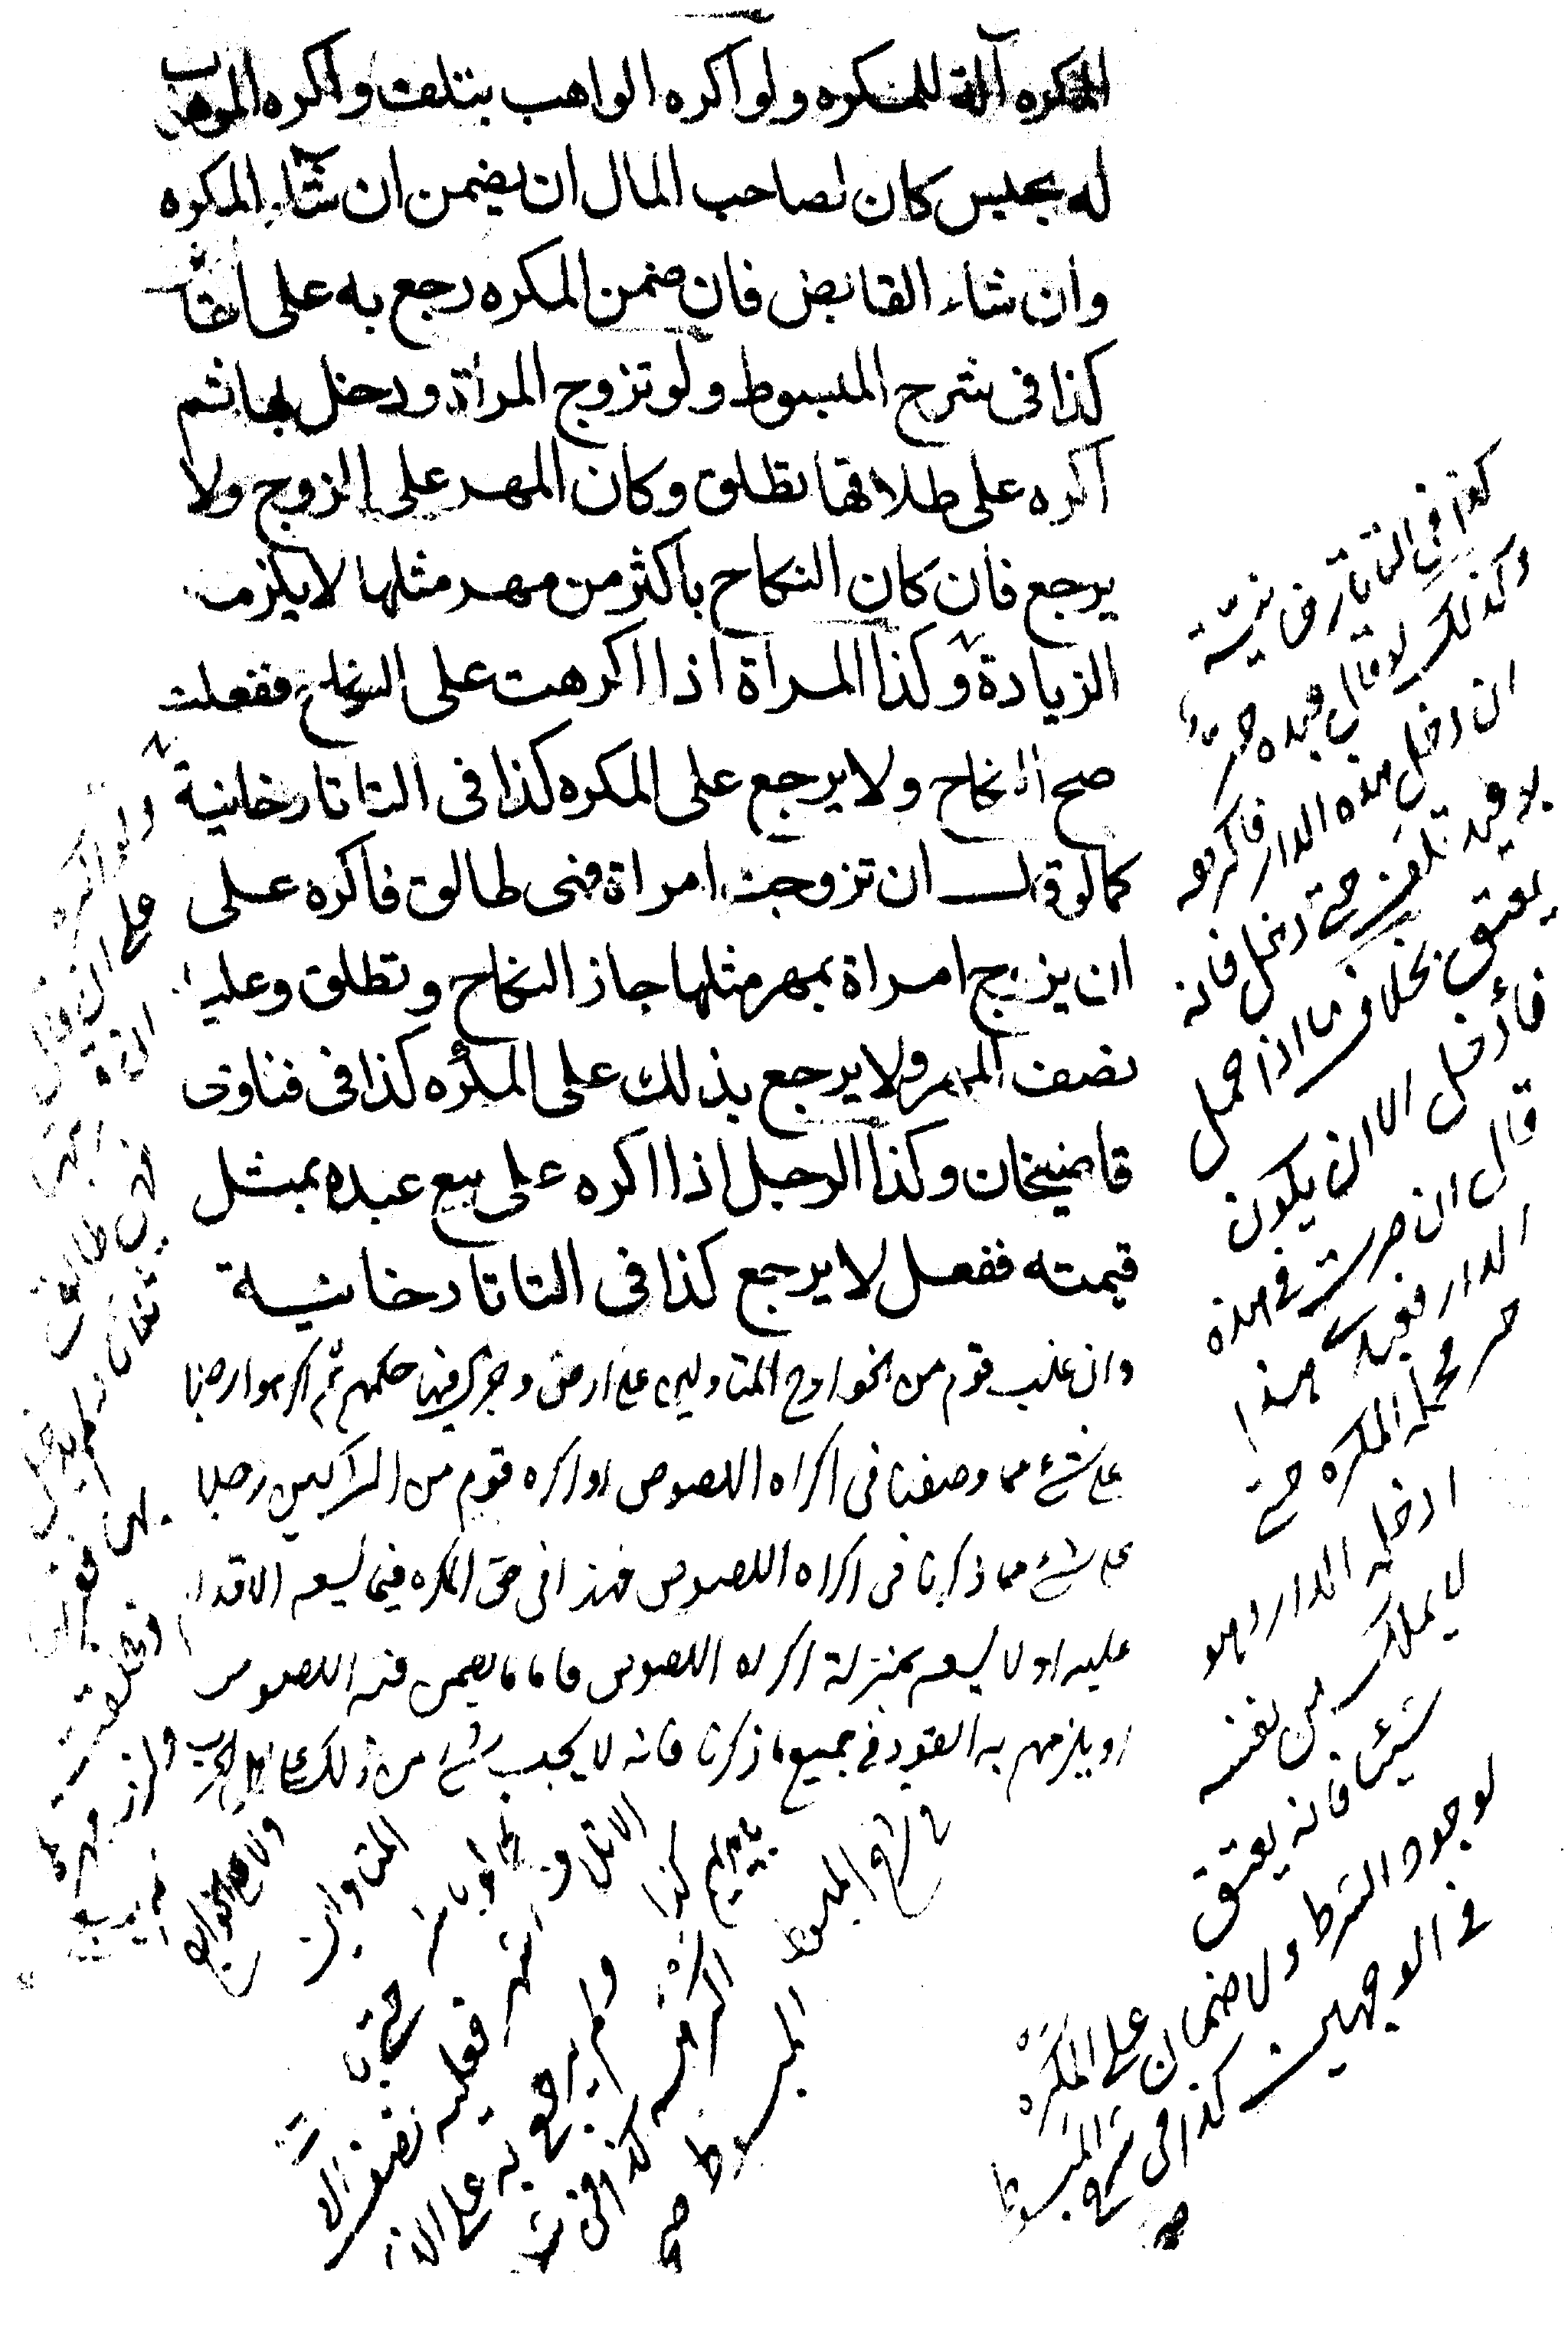 المكره آلة للمكره ولو اكره الواهب بتلف واكره الموهوب
له بحبس كان لصاحب المال ان يضمن ان شاء المكره
وان شاء القابض فان ضمن المكره رجع به على القا
كذا فى شرح المبسوط ولو تزوج المراة ودخل بها ثم
اكره على طلاقها تطلق وكان المهر على الزوج ولا
يرجع فان كان النكاح باكثر من مهر مثلها لا يلزمه
الزيادة وكذا المراة اذا اكرهت على النكاح ففعلت
صح النكاح ولا يرجع على المكره كذا فى التاتارخانية
كما لو قال ان تزوجت امراة فهى طالق فاكره على
ان يزوج امراة بمهر مثلها جاز النكاح وتطلق وعليه
نصف المهر ولا يرجع بذلك على المكره كذا فى فتاوى
قاضيخان وكذا الرجل اذا اكره على بيع عبده بمثل
قيمته ففعل لا يرجع كذا فى التاتارخانية
وان غلب قوم من الخوارج المتاولين على ارض وجرى فيها حكمهم ثم اكرهوا رجلا
على شئ مما وصفنا فى اكراه اللصوص او اكره قوم من المشركين رجلا
على شئ مما ذكرنا فى اكراه اللصوص فهذا فى حق المكره فيما يسعه الاقدام
عليه او لا يسعه بمنزلة اكراه اللصوص فاما ما يضمن فيه اللصوص
او يلزمهم به القود فى جميع ما ذكرنا فانه لا يجب شئ من ذلك على اهل الحرب
ولا على الخوارج
المتاولين
كذا
فى شرح المبسوط
كذا فى التاتارخانية
وكذلك لو قال عبده حر
ان دخل هذه الدار فاكره
بوعيد تلف حتى دخل فانه
يعتق بخلاف ما اذا حمل
فادخل الا ان يكون
قال ان صرت فى هذه
الدار فعبدى هذا
حر فحمله المكره حتى
ادخله الدار وهو
لا يملك من نفسه
شيئا فانه يعتق
لوجود الشرط ولا ضمان على المكره
فى الوجهين كذا فى شرح المبسوط
صح
ولو اكره
على ان قال
فهى طالق
ولم يدخل
بها
ولزمه مهرها
ولم يرجع به على
فعليه نصف
كذا فى
المبسوط
صح